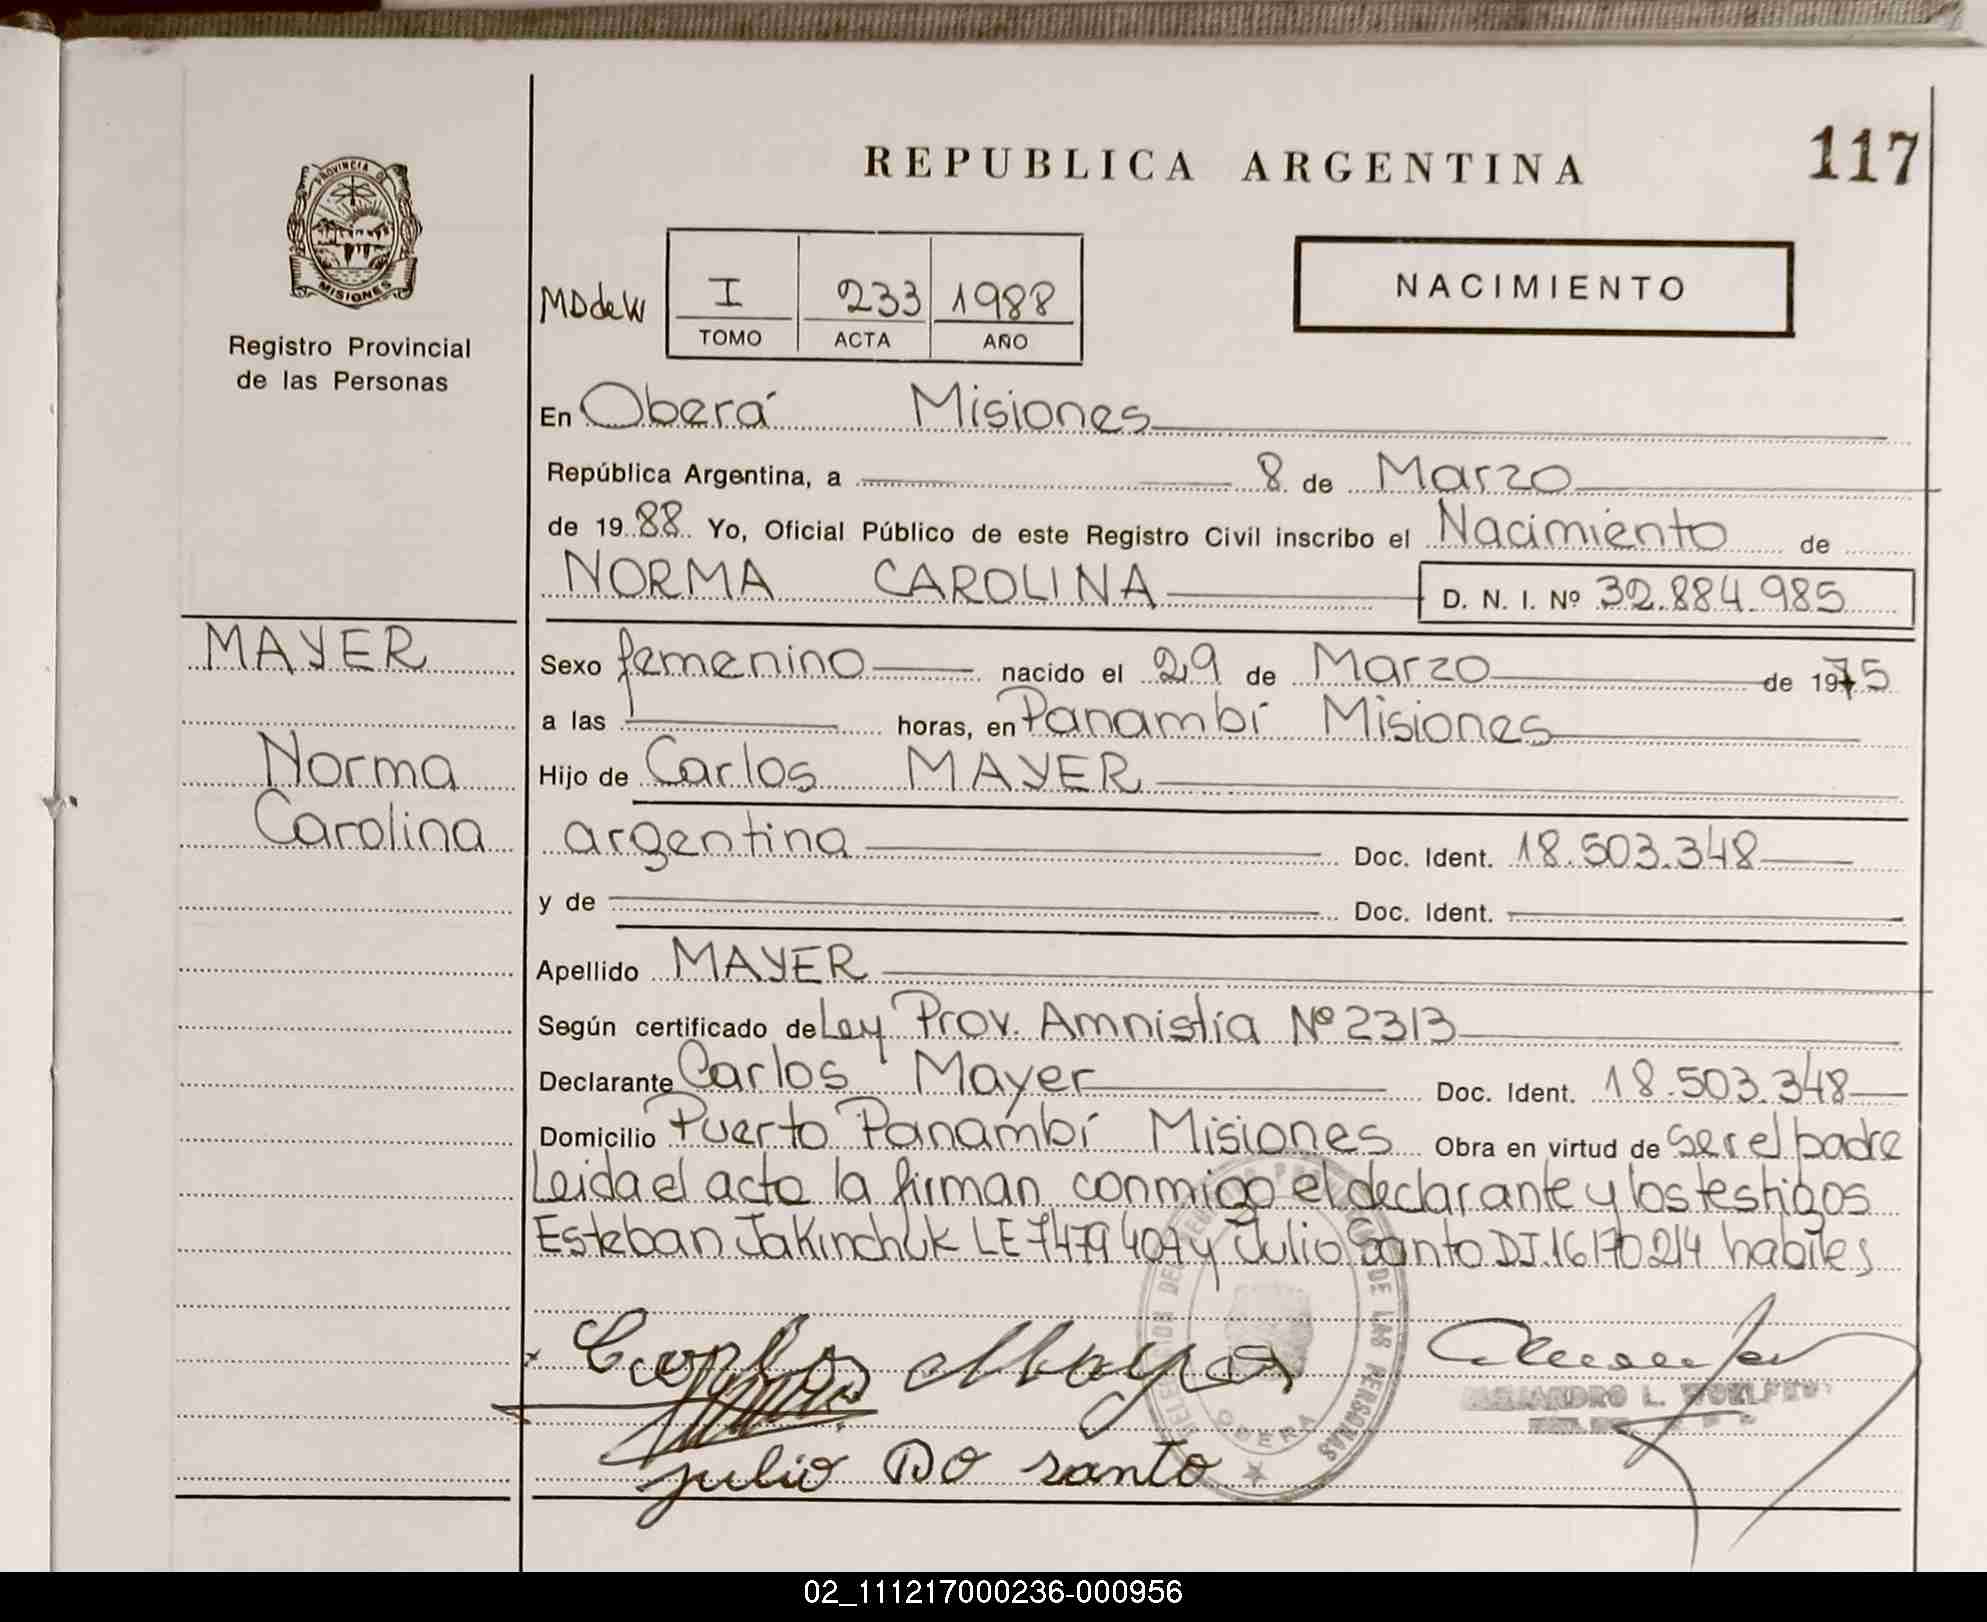 REPUBLICA ARGENTINA
117
PROVINCIA DE
MISIONES
Registro Provincial
de las Personas
MDdeW
I 233 1988
TOMO ACTA AÑO
NACIMIENTO
En Oberá Misiones
República Argentina, a 8 de Marzo
de 1988 Yo, Oficial Público de este Registro Civil inscribo el Nacimiento de
NORMA CAROLINA D. N. I. Nº 32.884.985
MAYER
Norma
Carolina
Sexo femenino nacido el 29 de Marzo de 1975
a las horas, en Panambí Misiones
Hijo de Carlos MAYER
argentina Doc. Ident. 18.503.348
y de Doc. Ident.
Apellido MAYER
Según certificado de Ley Prov. Amnistía Nº 2313
Declarante Carlos Mayer Doc. Ident. 18.503.348
Domicilio Puerto Panambí Misiones Obra en virtud de ser el padre
Leida el acta la firman conmigo el declarante y los testigos
Esteban Jakinchuk LE 7479407 y Julio Santo DI.16170214 habiles
Carlos Mayer
julio DO santo
DE LAS PERSONAS
OBERA
ALEJANDRO L.
02_111217000236-000956